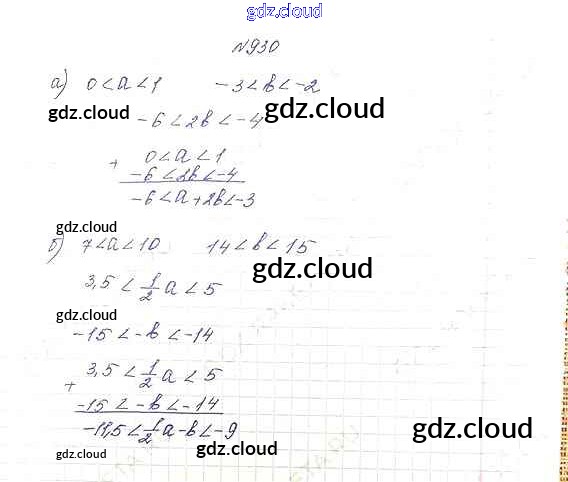 gdz.cloud
№930
а) 0<a<1 -3<b<-2
gdz.cloud gdz.cloud
-6<2b<-4
+ 0<a<1
-6<2b<-4
-6<a+2b<-3
gdz.cloud
б) 7<a<10 14<b<15
gdz.cloud
3,5<1/2a<5
gdz.cloud
-15<-b<-14
3,5<1/2a<5
+
-15<-b<-14
-11,5<1/2a-b<-9
gdz.cloud
gdz.cloud